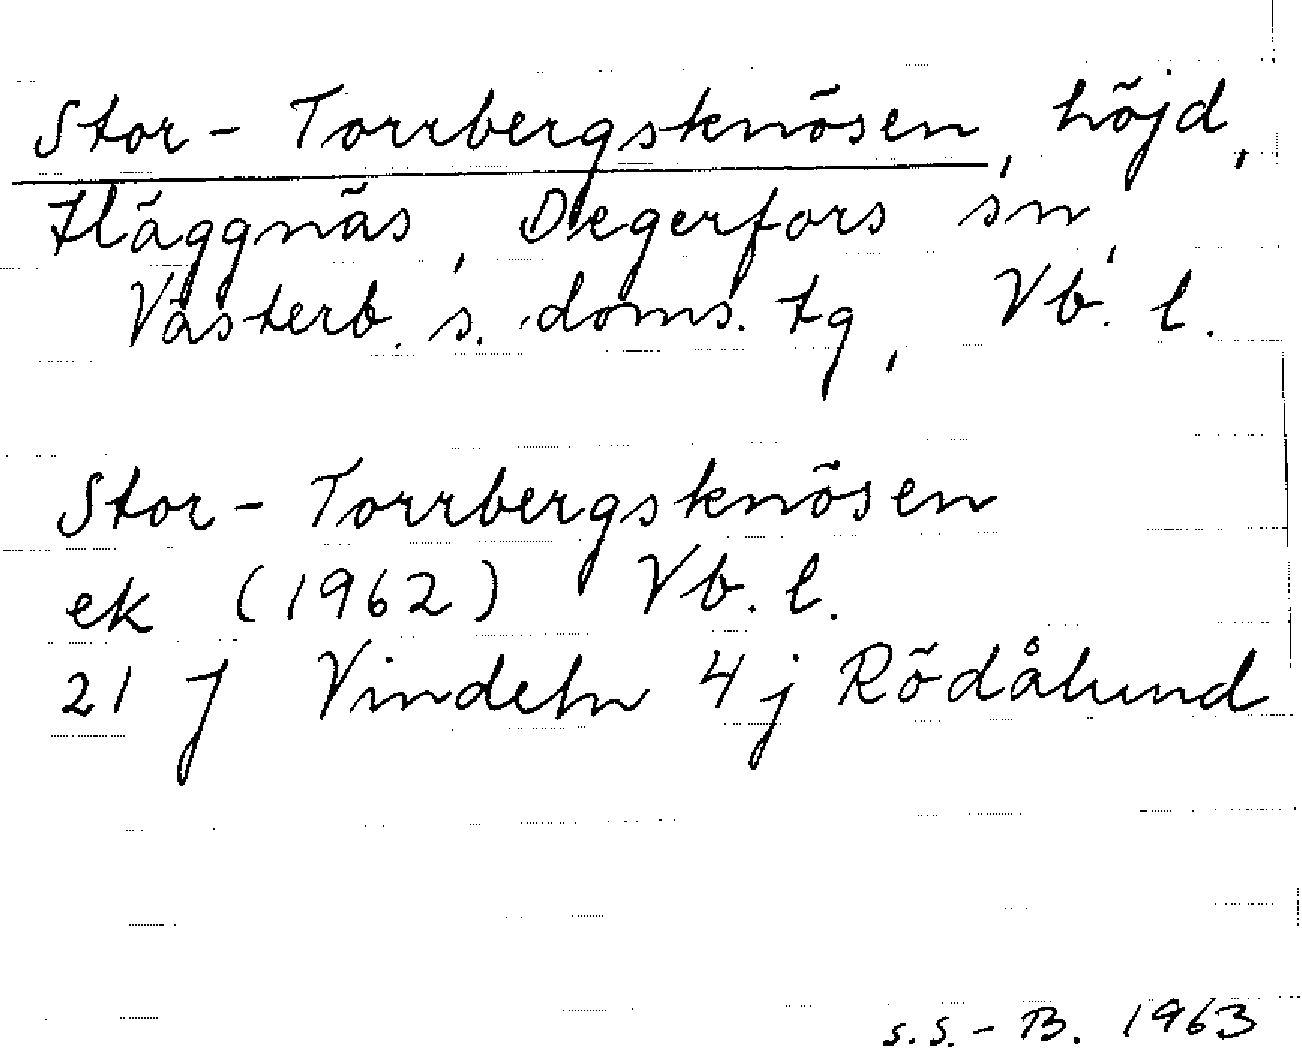 Stor-Torrbergsknösen, höjd,
Häggnäs, Degerfors sn,
Västerb. s. doms. tg, Vb. l.
Stor-Torrbergsknösen
ek (1962) Vb. l.
21 J Vindeln 4j Rödålund
S.S.-B. 1963